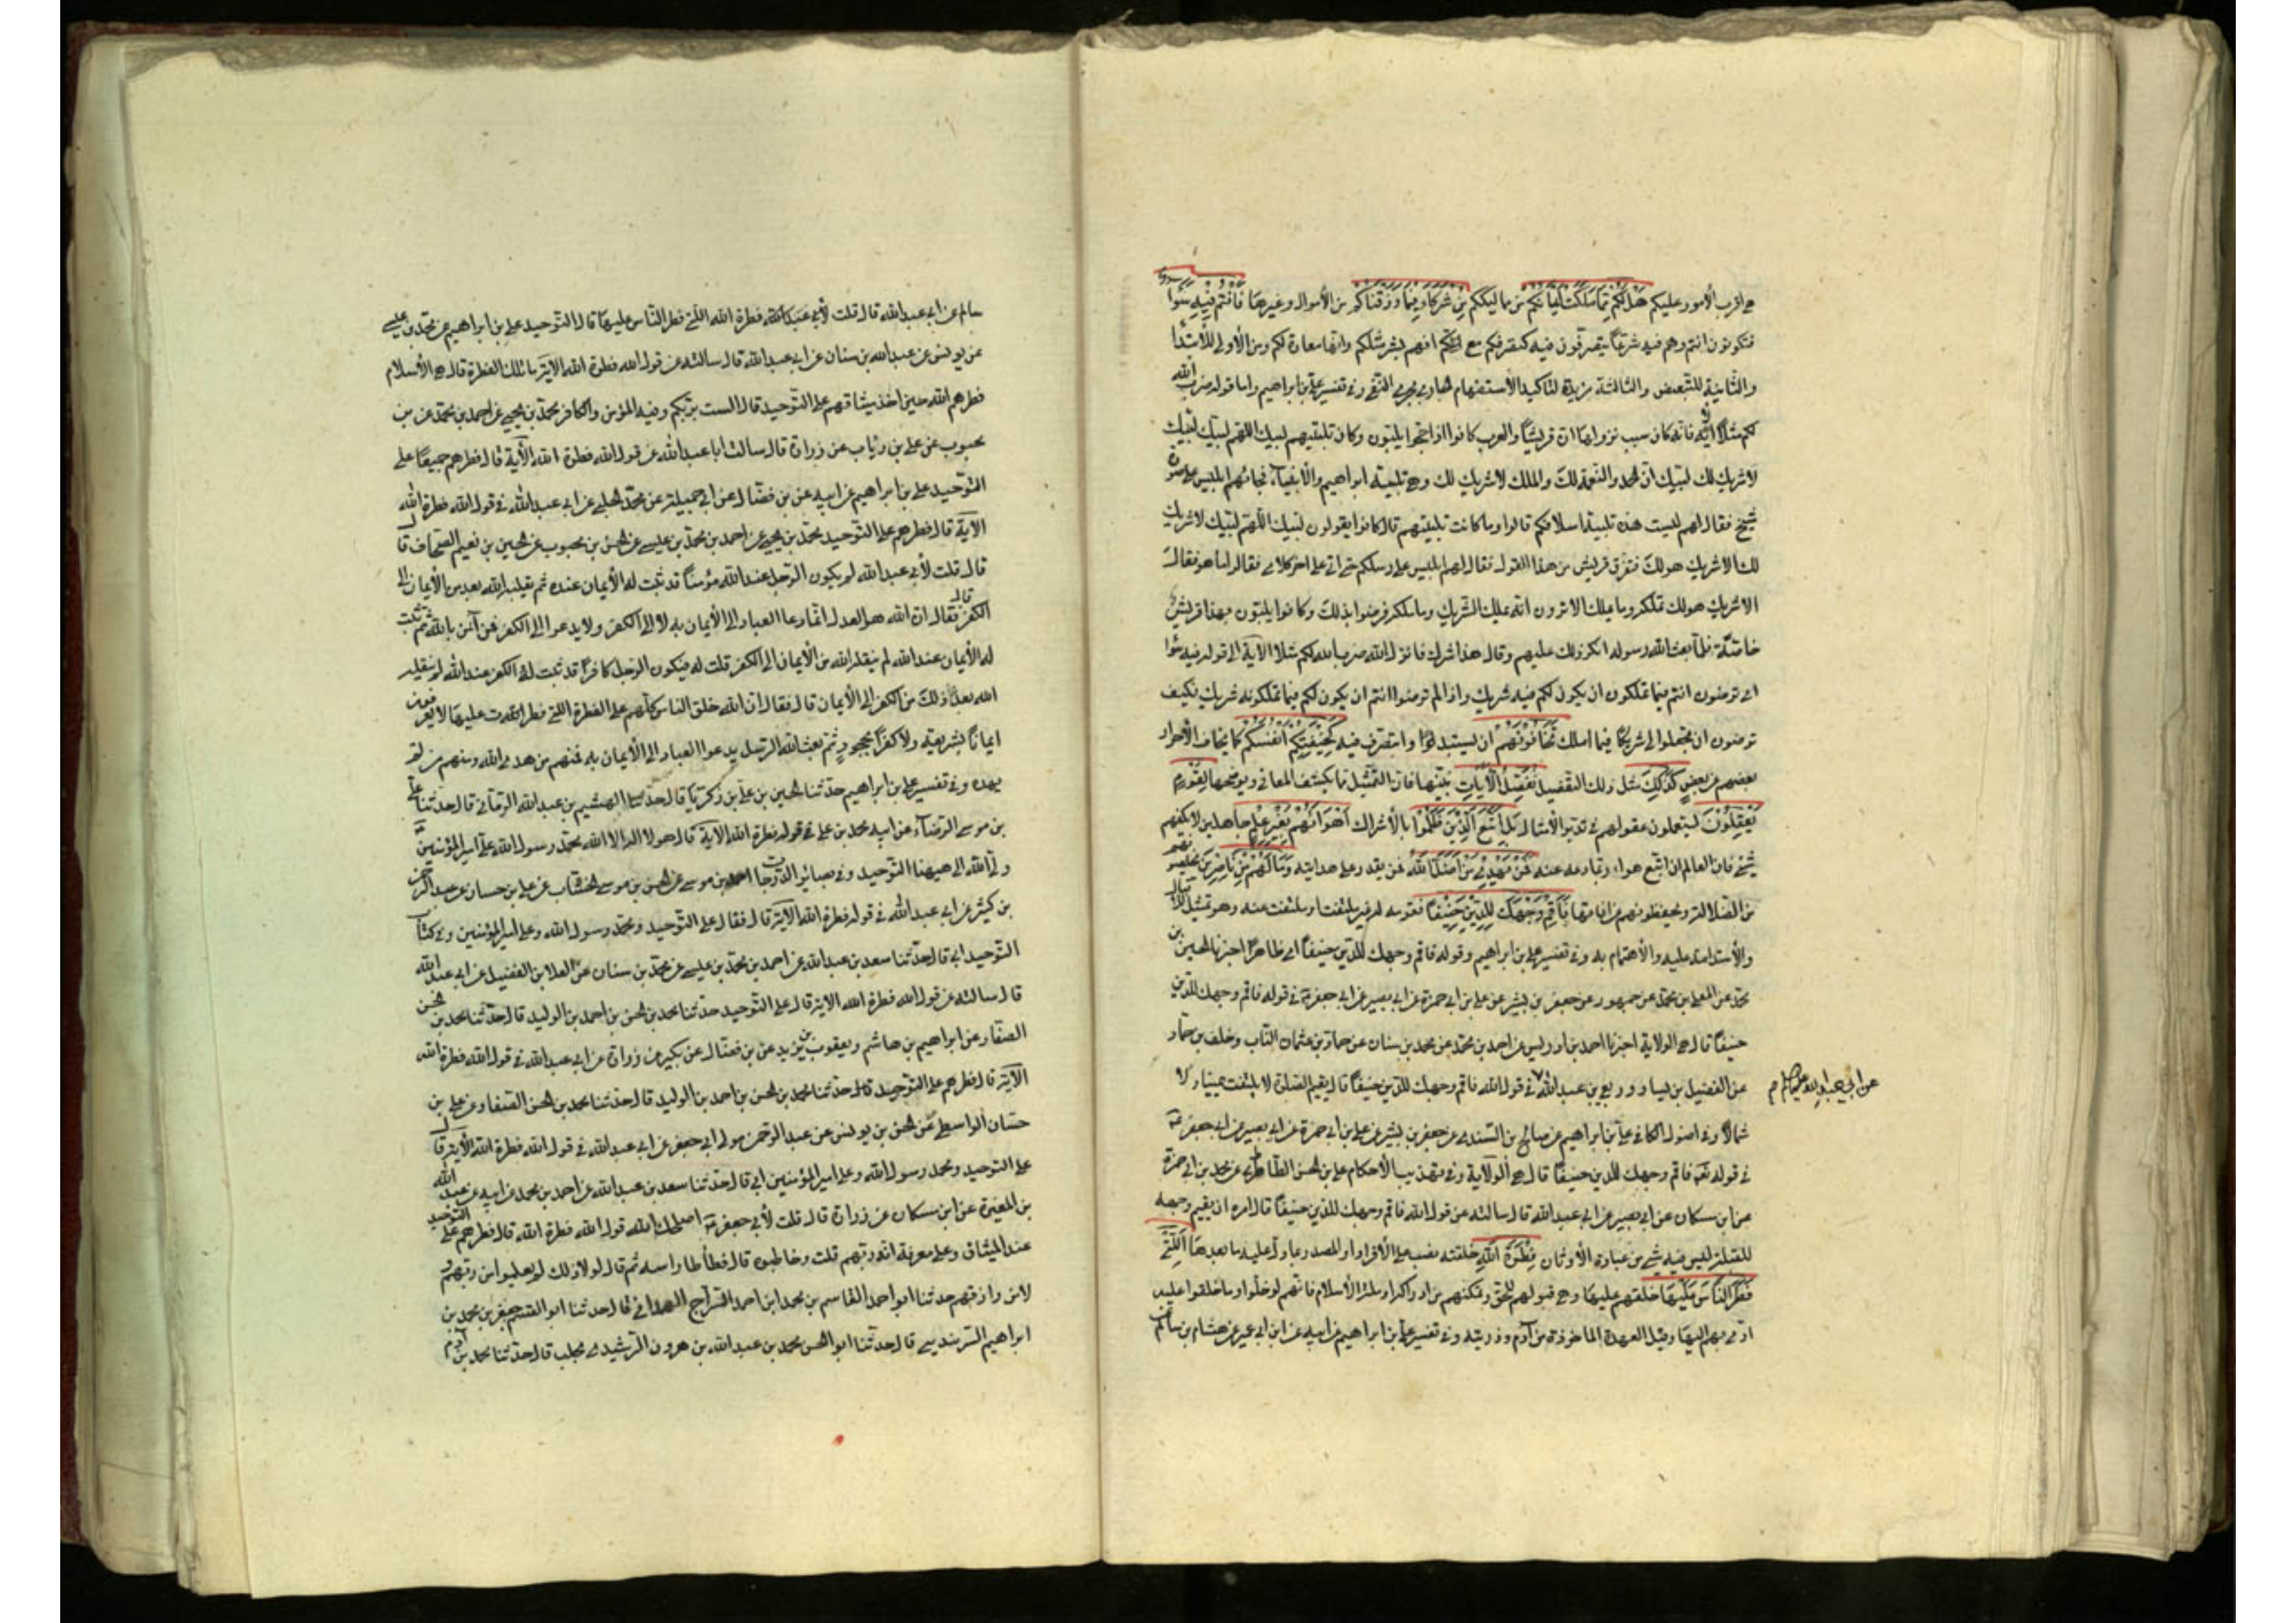 هي اقرب الأمور عليكم هَلْ لَكُمْ مِمَّا مَلَكَتْ أَيْمَانُكُمْ من مماليككم مِنْ شُرَكَاءَ فِيمَا رَزَقْنَاكُمْ من الأموال وغيرها فَأَنْتُمْ فِيهِ سَوَاءٌ
فتكونون انتم وهم فيه شرعًا يتصرّفون فيه كتصرفكم مع انهم بشر مثلكم وانها معارة لكم ومن الأولى للأبتدا
والثّانية للتّبعيض والثالثة مزيدة لتاكيد الأستفهام الجاري مجرى النّفي وفي تفسير علي بن ابراهيم واما قوله ضرب الله
لكم مثلًا الآية فانّه كان سبب نزولها انّ قريشًا والعرب كانوا اذا حجّوا يلبّون وكان تلبيتهم لبيك اللهم لبيك لبيك
لا شريك لك لبيك ان الحمد والنعمة لك والملك لا شريك لك وهي تلبية ابراهيم والأنبياء فجائهم ابليس على صورة
شيخ فقال لهم ليست هذه تلبية اسلافكم قالوا وما كانت تلبيتهم قال كانوا يقولون لبيك اللّهمّ لبّيك لا شريك
لك الا شريك هو لك فنفرت قريش من هذا القول فقال لهم ابليس على رسلكم حتى اتي على اخر كلامي فقالوا ما هو فقال
الا شريك هو لك تملكه وما يملك الا ترون انّه يملك الشّريك وما ملكه فرضوا بذلك وكانوا يلبّون بهذا قريش
خاصّة فلمّا بعث الله رسوله انكر ذلك عليهم وقال هذا شرك فانزل الله ضرب الله لكم مثلا الآية الى قوله فيه سواء
اى ترضون انتم فيما تملكون ان يكون لكم فيه شريك واذا لم ترضوا انتم ان يكون لكم فيما تملكونه شريك فكيف
ترضون ان تجعلوا لي شريكًا فيما املك تَخَافُونَهُمْ ان يستبدّوا وا بتصرف فيه كَخِيفَتِكُمْ أَنْفُسَكُمْ كما يخاف الأحرار
بعضهم من بعض كَذَلِكَ مثل ذلك التفصيل نُفَصِّلُ الْآيَاتِ نبيّنها فان التّمثيل مما يكشف المعاني ويوضحها لِقَوْمٍ
يَعْقِلُونَ يستعملون عقولهم في تدبّر الأمثال بَلِ اتَّبَعَ الَّذِينَ ظَلَمُوا بالأشراك أَهْوَاءَهُمْ بِغَيْرِ عِلْمٍ جاهلين لا يكفهم
شئ فان العالم ان اتّبع هواه ربما ردعه عنه فَمَنْ يَهْدِي مَنْ أَضَلَّ اللَّهُ فمن يقدر على هدايته وَمَا لَهُمْ مِنْ نَاصِرِينَ يخلّصونهم
من الضّلالة ويحفظونهم من افاتها فَأَقِمْ وَجْهَكَ لِلدِّينِ حَنِيفًا فقومه له غير ملتفت او ملتفت عنه وهو تمثيل للأقبال
والأستقامة عليه والأهتمام به وفي تفسير علي بن ابراهيم وقوله فاقم وجهك للدّين حنيفًا اى طاهرًا اخبرنا الحسين بن
محمّد عن المعلى بن محمّد عن جمهور عن جعفر بن بشير عن على بن ابي حمزة عن ابي بصير عن ابي جعفر ع في قوله فاقم وجهك للدّين
حنيفًا قال هي الولاية اخبرنا احمد بن ادريس عن احمد بن محمّد عن محمد بن سنان عن حماد بن عثمان النّاب وخلف بن حمّاد
عن الفضيل بن يسار وربعي بن عبد الله في قول الله فاقم وجهك للدّين حنيفًا قال يقيم الصّلوة لا يلتفت يمينا ولا
عن ابي عبد الله عليه السلام م
شمالًا وفي اصول الكافي علي بن ابراهيم عن صالح بن السّندي عن جعفر بن بشير عن علي بن ابي حمزة عن ابي بصير عن ابي جعفر ع
في قوله تع فاقم وجهك للدين حنيفًا قال هي الولاية وفي تهذيب الأحكام علي بن الحسن الطّاطري عن محمد بن ابي حمزة
عن ابن مسكان عن ابي بصير عن ابي عبد الله قال سالته عن قول الله فاقم وجهك للدّين حنيفًا قال امره ان يقيم وجهه
للقبلة ليس فيه شئ من عبادة الأوثان فِطْرَةَ اللَّهِ خلقته نصب على الأغراء او المصدر بما دل عليه ما بعدها الَّتِي
فَطَرَ النَّاسَ عَلَيْهَا خلقهم عليها وهي قبولهم للحق وتمكنهم من ادراكه او ملّة الأسلام فانّهم لو خلّوا وما خلقوا عليه
ادّى بهم اليها وقيل العهدة الماخوذة من آدم وذريته وفي تفسير علي بن ابراهيم عن ابيه عن ابن ابي عمير عن هشام بن سالم
سالم عن ابي عبد الله قال قلت لأبي عبد الله فطرة الله الّتي فطر النّاس عليها قال التّوحيد علي بن ابراهيم عن محمّد بن عيسى
عن يونس عن عبد الله بن سنان عن ابي عبد الله قال سالته عن قول الله فطرة الله الآية ما تلك الفطرة قال هي الأسلام
فطرهم الله حين اخذ ميثاقهم على التّوحيد قال الست بربّكم وفيه المؤمن والكافر محمّد بن يحيى عن احمد بن محمّد عن بن
محبوب عن علي بن رئاب عن زرارة قال سالت ابا عبد الله عن قول الله فطرة الله الآية قال فطرهم جميعًا على
التّوحيد علي بن ابراهيم عن ابيه عن بن فضّال عن ابي جميلة عن محمّد الحلبي عن ابي عبد الله في قول الله فطرة الله
الآية قال فطرهم على التّوحيد محمّد بن يحيى عن احمد بن محمّد بن عيسى عن الحسن بن محبوب عن الحسين بن نعيم الصحّاف قال
قال قلت لأبي عبد الله لم يكون الرّجل عند الله مؤمنًا قد ثبت له الأيمان عنده ثم ينقله الله بعد من الأيمان الى
الكفر قال فقال ان الله هو العدل انّما دعا العباد الى الأيمان به لا الى الكفر ولا يدعوا الى الكفر فمن آمن بالله ثم ثبت
له الأيمان عند الله لم ينقله الله من الأيمان الى الكفر قلت له فيكون الرّجل كافرًا قد ثبت له الكفر عند الله ثم ينقله
الله بعد ذلك من الكفر الى الأيمان قال فقال ان الله خلق الناس كلّهم على الفطرة الّتي فطرهم عليها لا يعرفون
ايمانًا بشريعة ولا كفرًا بجحود ثم بعث الله الرّسل يدعوا العباد الى الأيمان به فمنهم من هدى الله ومنهم من لم
يهده وفي تفسير علي بن ابراهيم حدّثنا الحسين بن علي بن زكريّا قال حدّثنا الهيثم بن عبد الله الرّماني قال حدّثنا علي
بن موسى الرّضا عن ابيه محمد بن علي في قوله فطرة الله الآية قال هو لا اله الا الله محمّد رسول الله علي امير المؤمنين
ولي الله الى هيهنا التّوحيد وفي بصائر الدّرجات احمد بن موسى عن الحسن بن موسى الخشّاب عن علي بن حسان عن عبد الرّحمن
بن كثير عن ابي عبد الله في قوله فطرة الله الآية قال فقال على التّوحيد ومحمّد رسول الله وعلي امير المؤمنين وفي كتاب
التّوحيد ابي قال حدّثنا سعد بن عبد الله عن احمد بن محمّد بن عيسى عن محمّد بن سنان عن العلا بن الفضيل عن ابي عبد الله
قال سالته عن قول الله فطرة الله الآية قال على التّوحيد حدّثنا محمد بن الحسن بن احمد بن الوليد قال حدّثنا محمد بن الحسن
الصفّار عن ابراهيم بن هاشم ويعقوب بن يزيد عن بن فضّال عن بكير عن زرارة عن ابي عبد الله في قول الله فطرة الله
الآية قال فطرهم على التّوحيد قال حدّثنا محمد بن الحسن بن احمد بن الوليد قال حدّثنا محمد بن الحسن الصّفار عن علي بن
حسّان الواسطي عن الحسن بن يونس عن عبد الرّحمن مولى ابي جعفر عن ابي عبد الله في قول الله فطرة الله الآية قال
على التوحيد ومحمد رسول الله وعلي امير المؤمنين ابي قال حدّثنا سعد بن عبد الله عن احمد بن محمد عن ابيه عن عبد الله
بن المغيرة عن ابن مسكان عن زرارة قال قلت لأبي جعفر ع اصلحك الله قول الله فطرة الله قال فطرهم على التوحيد
عند الميثاق وعلى معرفة انّه ربّهم قلت وخاطبوه قال فطأطا راسه ثم قال لولا ذلك لم يعلموا من ربّهم و
لا من رازقهم حدثنا ابو احمد القاسم بن محمد ابن احمد السّراج الهمداني قال حدثنا ابو القسم جعفر بن محمد بن
ابراهيم السّرنديبي قال حدّثنا ابو الحسن محمد بن عبد الله بن هرون الرّشيدي بحلب قال حدّثنا محمد بن آدم